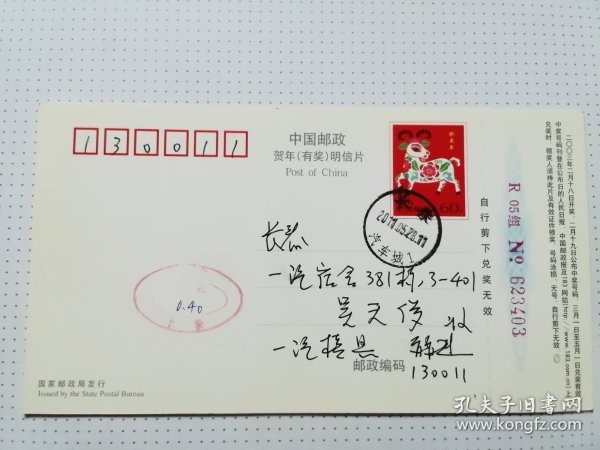 130011
中国邮政
贺年(有奖)明信片
Post of China
癸未年
60分
长春
2011.05.28.11
汽车城1
长春
一汽宿舍381栋,3-401
吴天俊 收
一汽模具
邮政编码
130011
0.40
国家邮政局发行
Issued by the State Postal Bureau
自行剪下兑奖无效
R 05组 No:623403
二〇〇三年二月十八日开奖,二月十九日公布中奖号码,三月一日至五月一日兑奖有效
中奖号码刊登在公布日的人民日报、中国邮政报及183网站(http://www.183.com.cn)上
兑奖时,领奖人须持此片及有效证件领奖,号码涂损、无号、自行剪下无效
孔夫子旧书网
www.kongfz.com